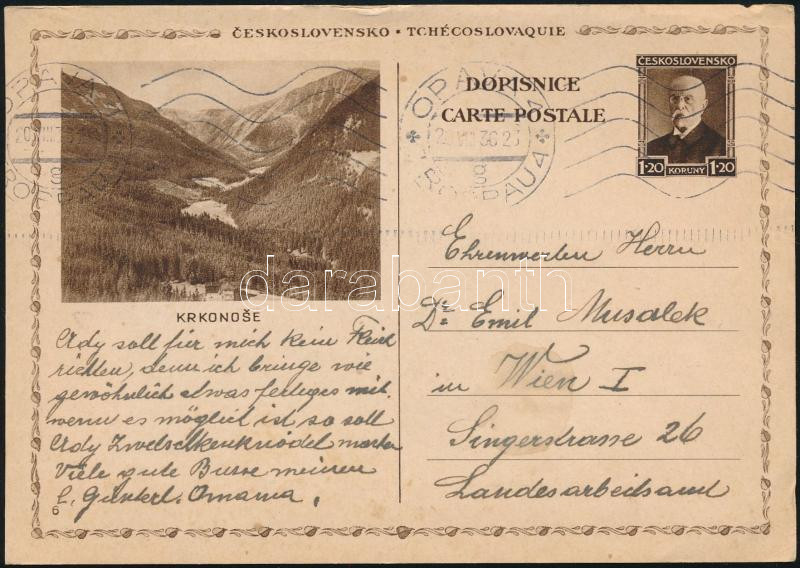 ČESKOSLOVENSKO • TCHÉCOSLOVAQUIE
DOPISNICE
CARTE POSTALE
ČESKOSLOVENSKO
1·20 KORUNY 1·20
OPAVA 4
TROPPAU 4
KRKONOŠE
Ady soll für mich kein Fleisch
richten, denn ich bringe wie
gewöhnlich etwas fertiges mit.
wenn es möglich ist so soll
Ady Zwetschkenknödel machen
Viele gute Busse meinen
Omama,
6
Ehrenwerten Herrn
Dr. Emil Musalek
in Wien I
Singerstrasse 26
Landesarbeitsamt
darabanth